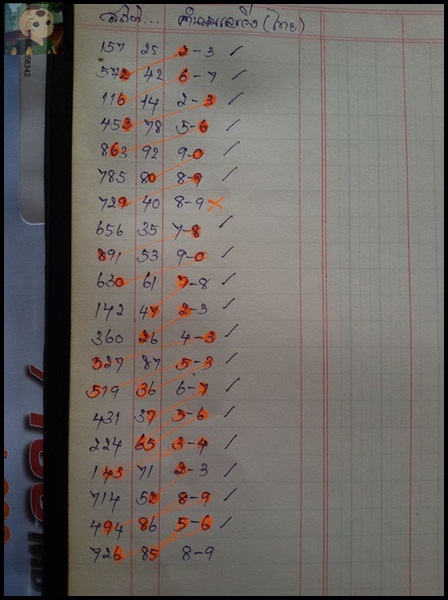 สถิติ... คำนวณเลขวิ่ง (ไทย)
157 25 2-3 ✓
572 42 6-7 ✓
116 14 2-3 ✓
453 78 5-6 ✓
863 92 9-0 ✓
785 80 8-9 ✓
729 40 8-9 ×
656 35 7-8 ✓
891 53 9-0 ✓
630 61 7-8 ✓
142 47 2-3 ✓
360 26 4-3 ✓
327 87 5-3 ✓
519 36 6-7 ✓
431 37 5-6 ✓
224 65 3-4 ✓
143 71 2-3 ✓
714 52 8-9 ✓
494 86 5-6 ✓
726 85 8-9